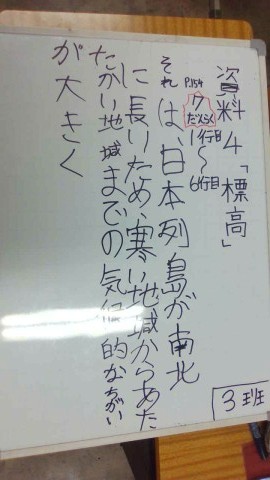 資料4「標高」
P.154
7
だんらく
1行目
〜
6行目
それは、日本列島が南北
に長いため、寒い地域からあた
たかい地域までの気候的なちがい
が大きく
3班